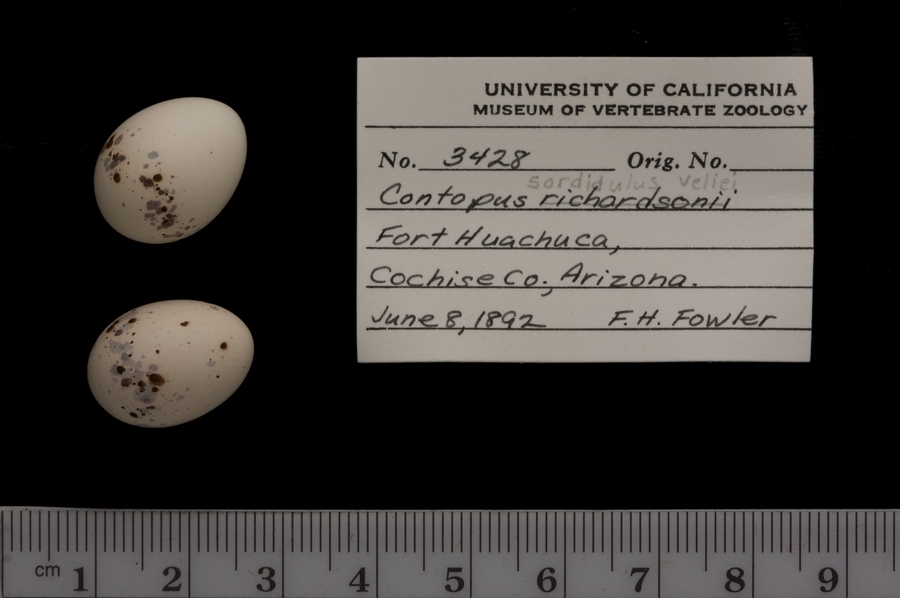 UNIVERSITY OF CALIFORNIA
MUSEUM OF VERTEBRATE ZOOLOGY
No. 3428 Orig. No.
sordidulus veliei
Contopus richardsonii
Fort Huachuca,
Cochise Co., Arizona.
June 8, 1892 F.H. Fowler
cm 1 2 3 4 5 6 7 8 9